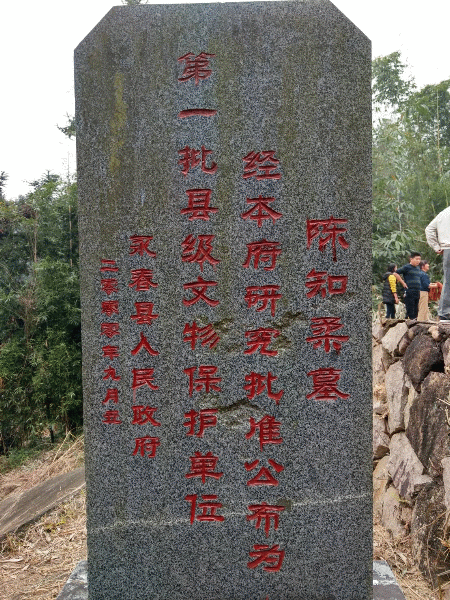 陈知柔墓
经本府研究批准公布为
第一批县级文物保护单位
永春县人民政府